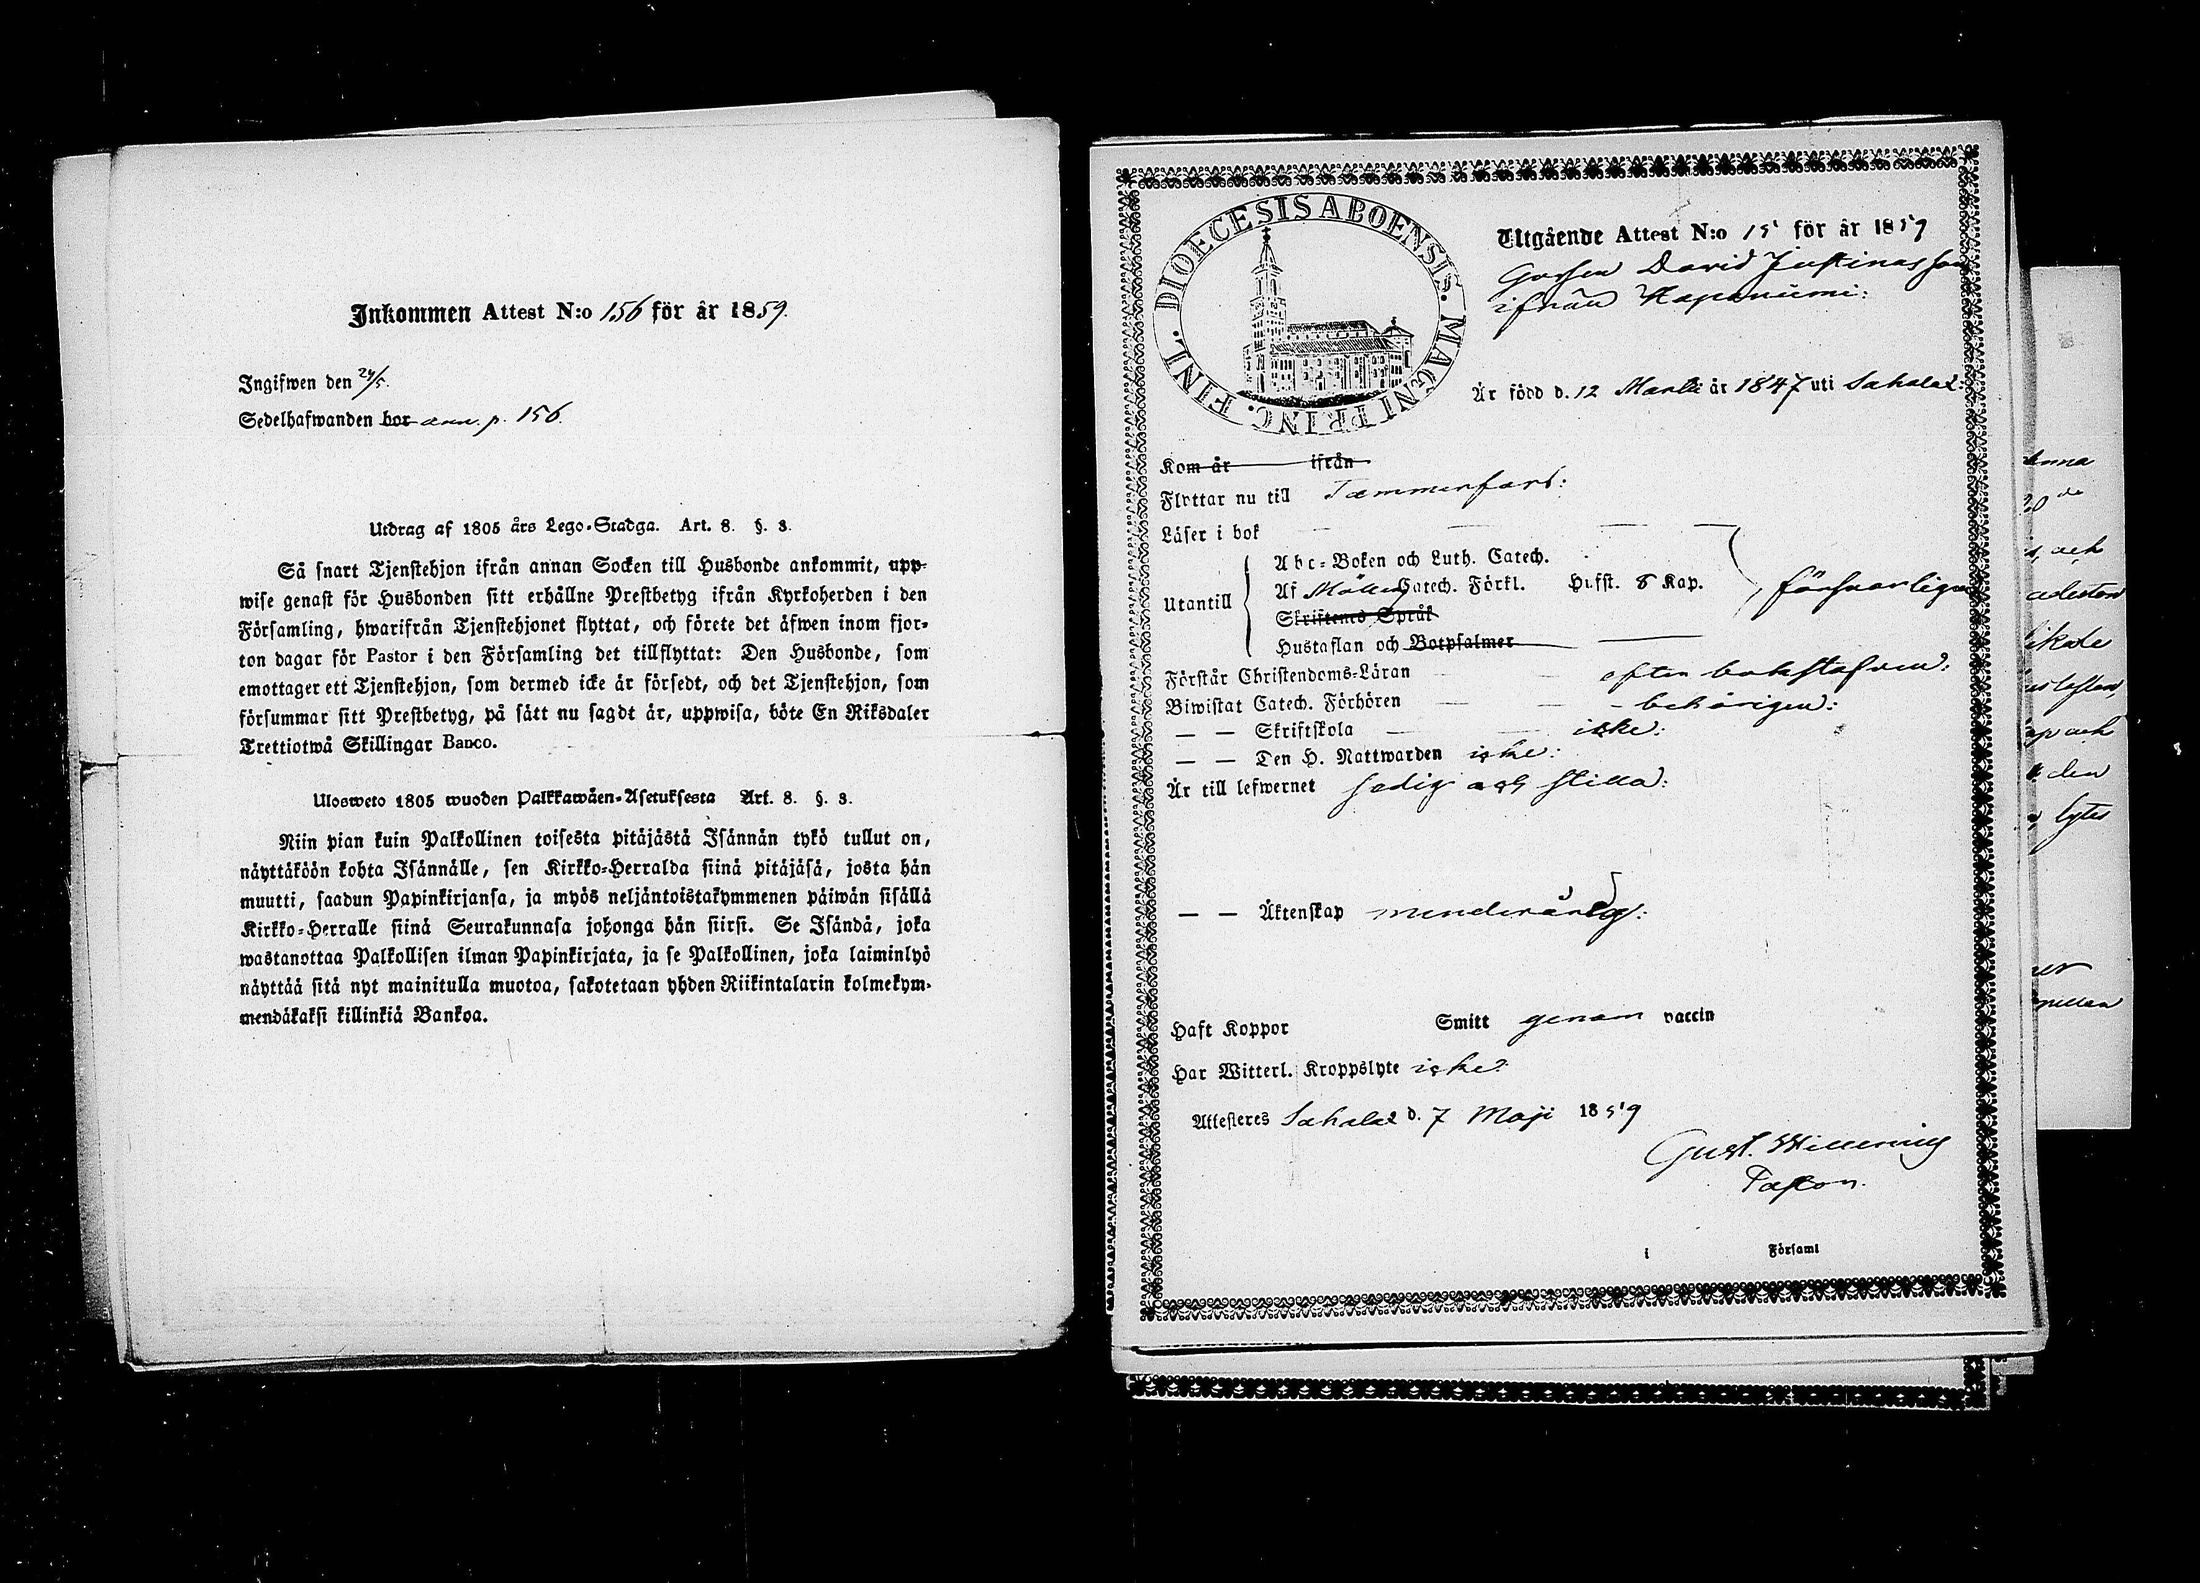 Inkommen Attest N:o 156 för år 1859.
Ingifwen den 24/5.
Sedelhafwanden bor ann. p. 156.
Utdrag af 1805 års Lego-Stadga. Art. 8. §. 3.
Så snart Tjenstehjon ifrån annan Socken till Husbonde ankommit, upp-
wise genast för Husbonden sitt erhållne Prestbetyg ifrån Kyrkoherden i den
Församling, hwarifrån Tjenstehjonet flyttat, och förete det äfwen inom fjor-
ton dagar för Pastor i den Församling det tillflyttat: Den Husbonde, som
emottager ett Tjenstehjon, som dermed icke är försedt, och det Tjenstehjon, som
försummar sitt Prestbetyg, på sätt nu sagdt är, uppwisa, böte En Riksdaler
Trettiotwå Skillingar Banco.
Ulosweto 1805 wuoden Palkkawäen-Asetuksesta Art. 8. §. 3.
Niin pian kuin Palkollinen toisesta pitäjästä Isännän tykö tullut on,
näyttäköön kohta Isännälle, sen Kirkko-Herralda siinä pitäjäsä, josta hän
muutti, saadun Papinkirjansa, ja myös neljäntoistakymmenen päiwän sisällä
Kirkko-Herralle siinä Seurakunnasa johonga hän siirsi. Se Isändä, joka
wastanottaa Palkollisen ilman Papinkirjata, ja se Palkollinen, joka laiminlyö
näyttää sitä nyt mainitulla muotoa, sakotetaan yhden Riikintalarin kolmekym-
mendäkaksi killinkiä Bankoa.
DIOECESIS ABOENSIS. MAGNI PRINC. FINL.
Utgående Attest N:o 15 för år 1859
Gossen David Justinasson
ifrån Haponiemi:
Är född d. 12 Martii år 1847 uti Sahalax:
Kom år ifrån
Flyttar nu till Tammerfors:
Läser i bok
Abc-Boken och Luth. Catech.
Utantill Af Möllers Catech. Förkl. Hufst. 8 Kap. försvarligen
Skriftenes Språk
Hustaflan och Botpsalmer
Förstår Christendoms-Läran efter bokstafven:
Biwistat Catech. Förhören behörigen:
— — Skriftskola icke:
— — Den H. Nattwarden icke:
Är till lefwernet sedig och stilla:
— — Äktenskap minderårig:
Haft Koppor Smitt genom vaccin
Har Witterl. Kroppslyte icke:
Attesteres Sahalax d. 7 Maji 1859
Gust. Willenius
Pastor.
i Församl
och
den